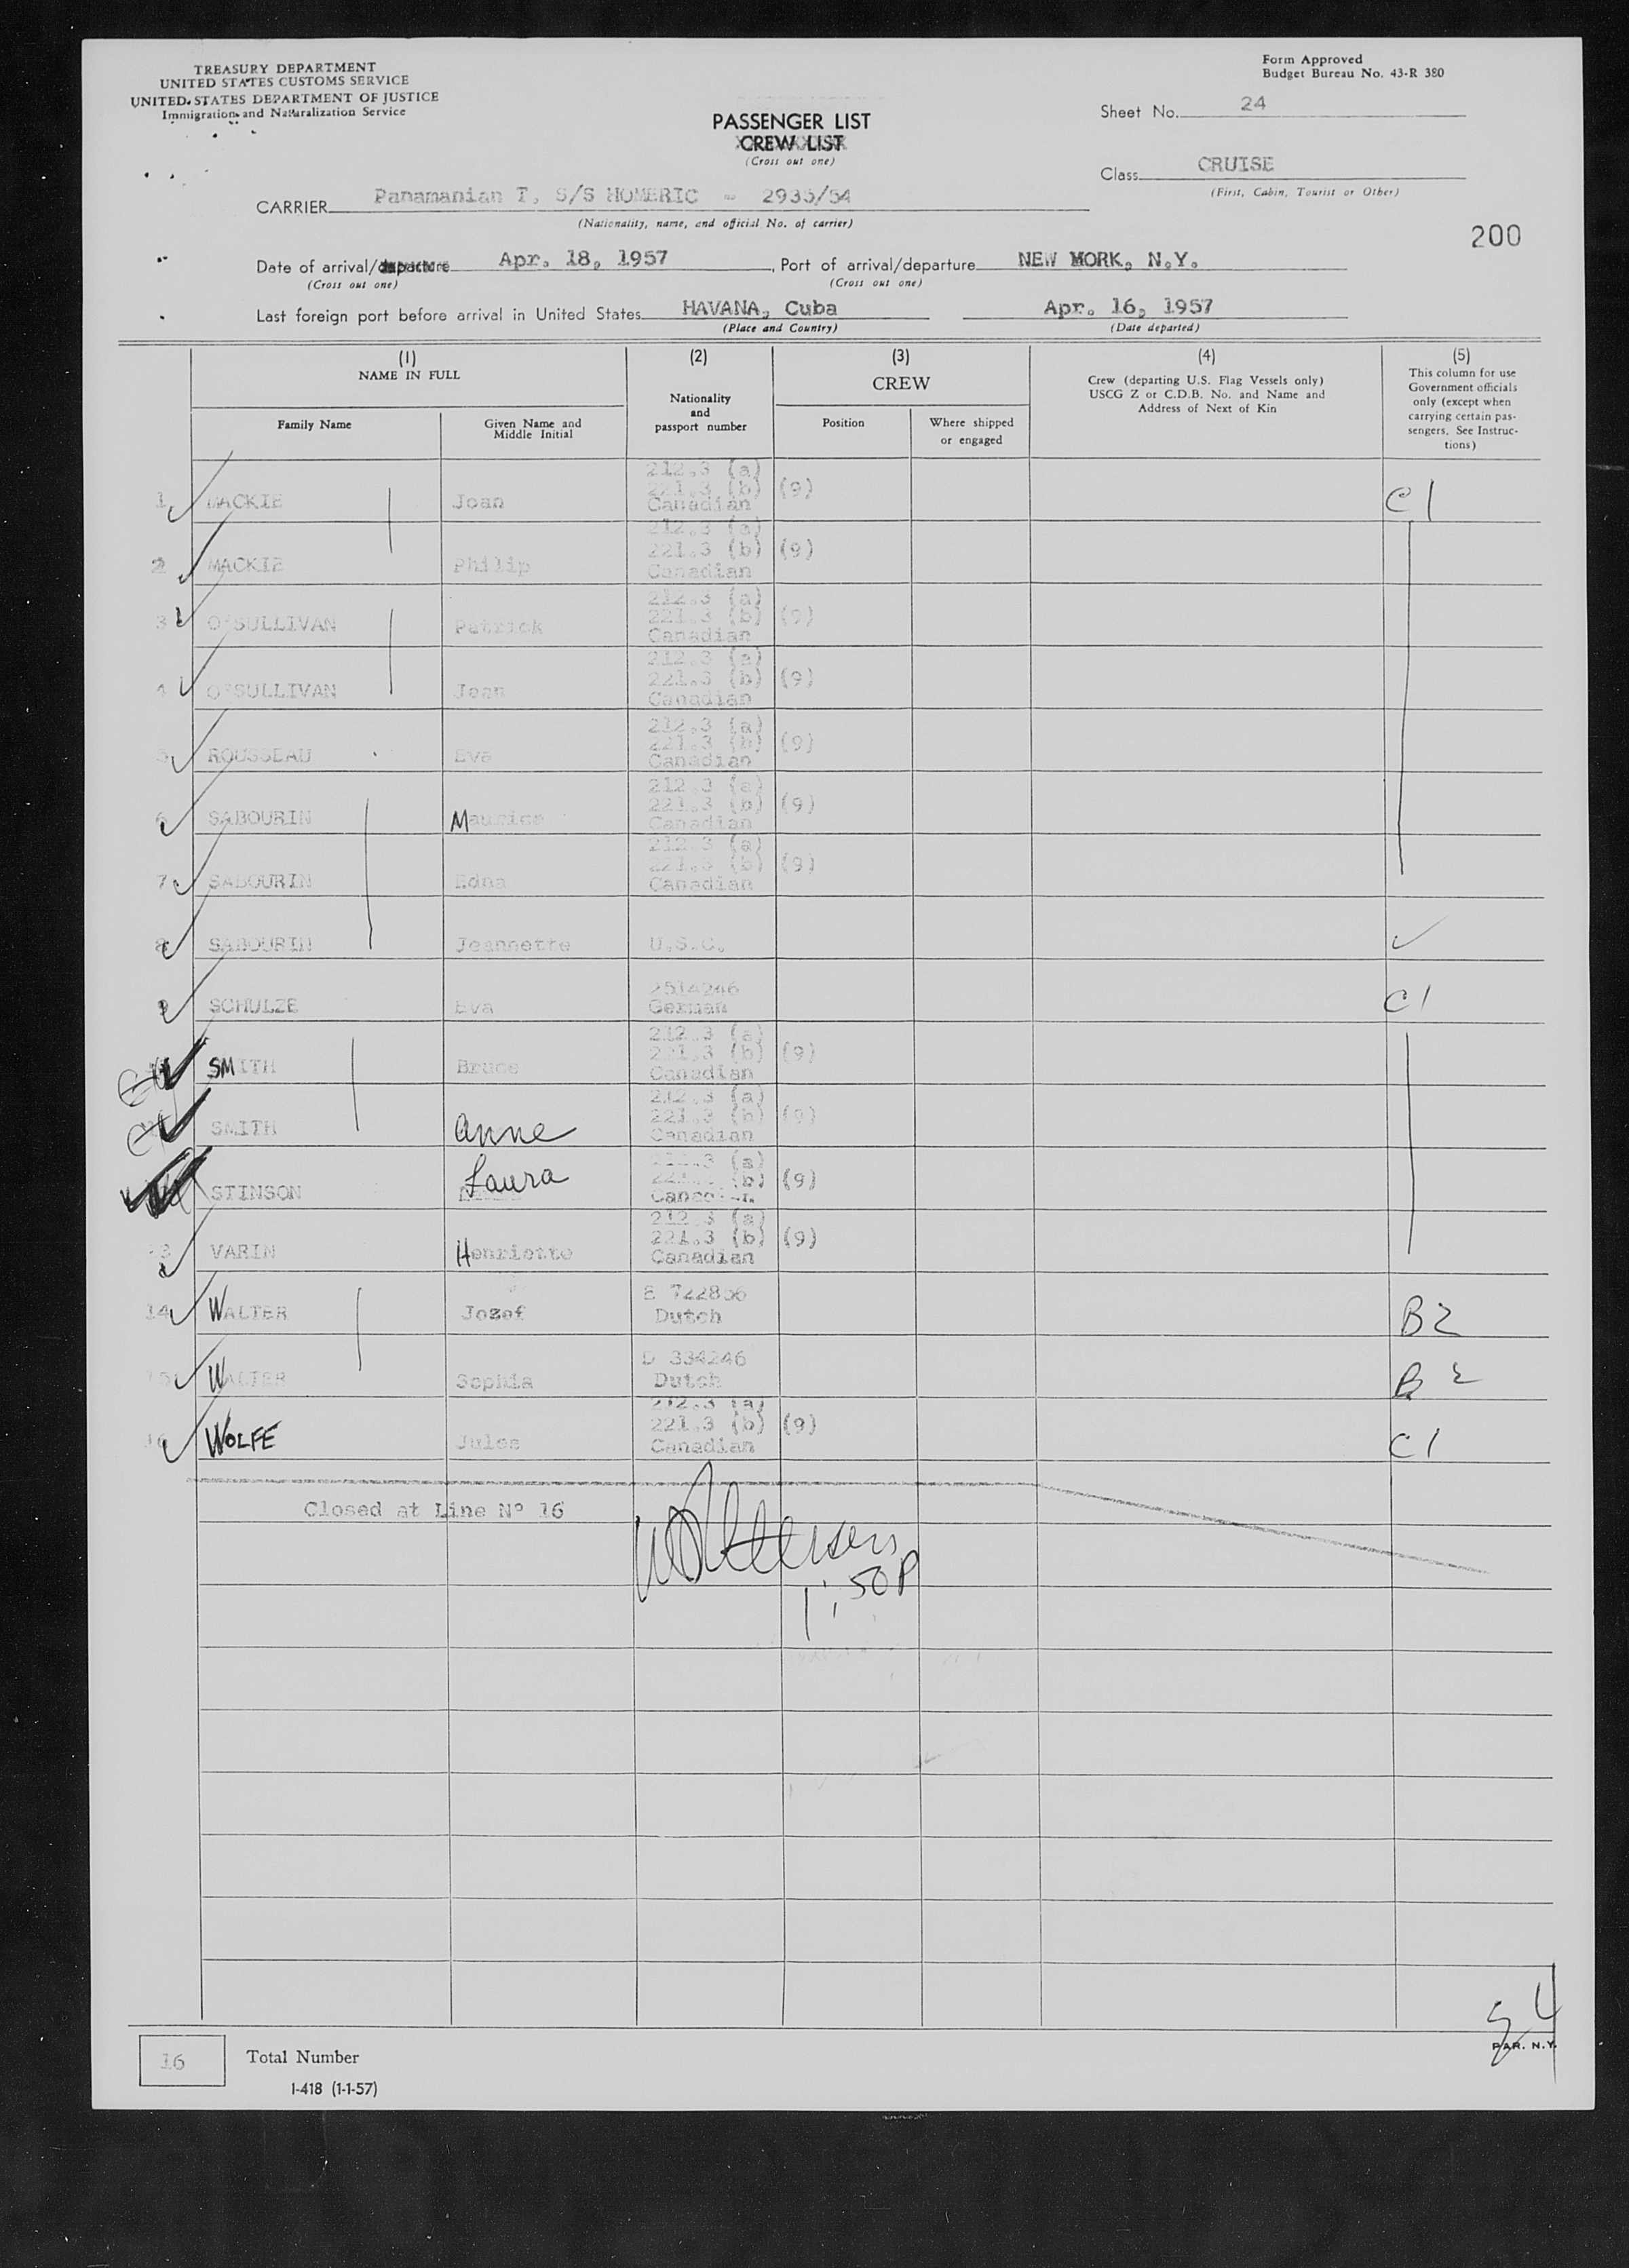 TREASURY DEPARTMENT
UNITED STATES CUSTOMS SERVICE
UNITED STATES DEPARTMENT OF JUSTICE
Immigration and Naturalization Service
Form Approved
Budget Bureau No. 43-R 380
Sheet No. 24
PASSENGER LIST
CREW LIST
(Cross out one)
Class CRUISE
(First, Cabin, Tourist or Other)
CARRIER Panamanian T, S/S HOMERIC - 2935/54
(Nationality, name, and official No. of carrier)
200
Date of arrival/departure Apr. 18, 1957, Port of arrival/departure NEW MORK, N.Y.
(Cross out one) (Cross out one)
Last foreign port before arrival in United States HAVANA, Cuba Apr. 16, 1957
(Place and Country) (Date departed)
(1) NAME IN FULL
Family Name
Given Name and Middle Initial
(2)
Nationality and passport number
(3)
CREW
Position
Where shipped or engaged
(4)
Crew (departing U.S. Flag Vessels only)
USCG Z or C.D.B. No. and Name and
Address of Next of Kin
(5)
This column for use
Government officials
only (except when
carrying certain pas-
sengers. See Instruc-
tions)
212.3 (a)
221.3 (b) (9)
1 MACKIE Joan Canadian C1
212.3 (a)
221.3 (b) (9)
2 MACKIE Philip Canadian
212.3 (a)
221.3 (b) (9)
3 O'SULLIVAN Patrick Canadian
212.3 (a)
221.3 (b) (9)
4 O'SULLIVAN Jean Canadian
212.3 (a)
221.3 (b) (9)
5 ROUSSEAU Eva Canadian
212.3 (a)
221.3 (b) (9)
6 SABOURIN Maurice Canadian
212.3 (a)
221.3 (b) (9)
7 SABOURIN Edna Canadian
8 SABOURIN Jeannette U.S.C. ✓
2514246
9 SCHULZE Eva German C1
212.3 (a)
221.3 (b) (9)
SMITH Bruce Canadian
212.3 (a)
221.3 (b) (9)
SMITH Anne Canadian
(a)
(b) (9)
STINSON Laura
212.3 (a)
221.3 (b) (9)
13 VARIN Henriette Canadian
E 722856
14 WALTER Jozef Dutch B2
D 334246
15 WALTER Sophia Dutch B2
212.3 (a)
221.3 (b) (9)
16 WOLFE Jules Canadian C1
Closed at Line Nº 16
1:50P
PAR. N.Y.
16 Total Number
I-418 (1-1-57)